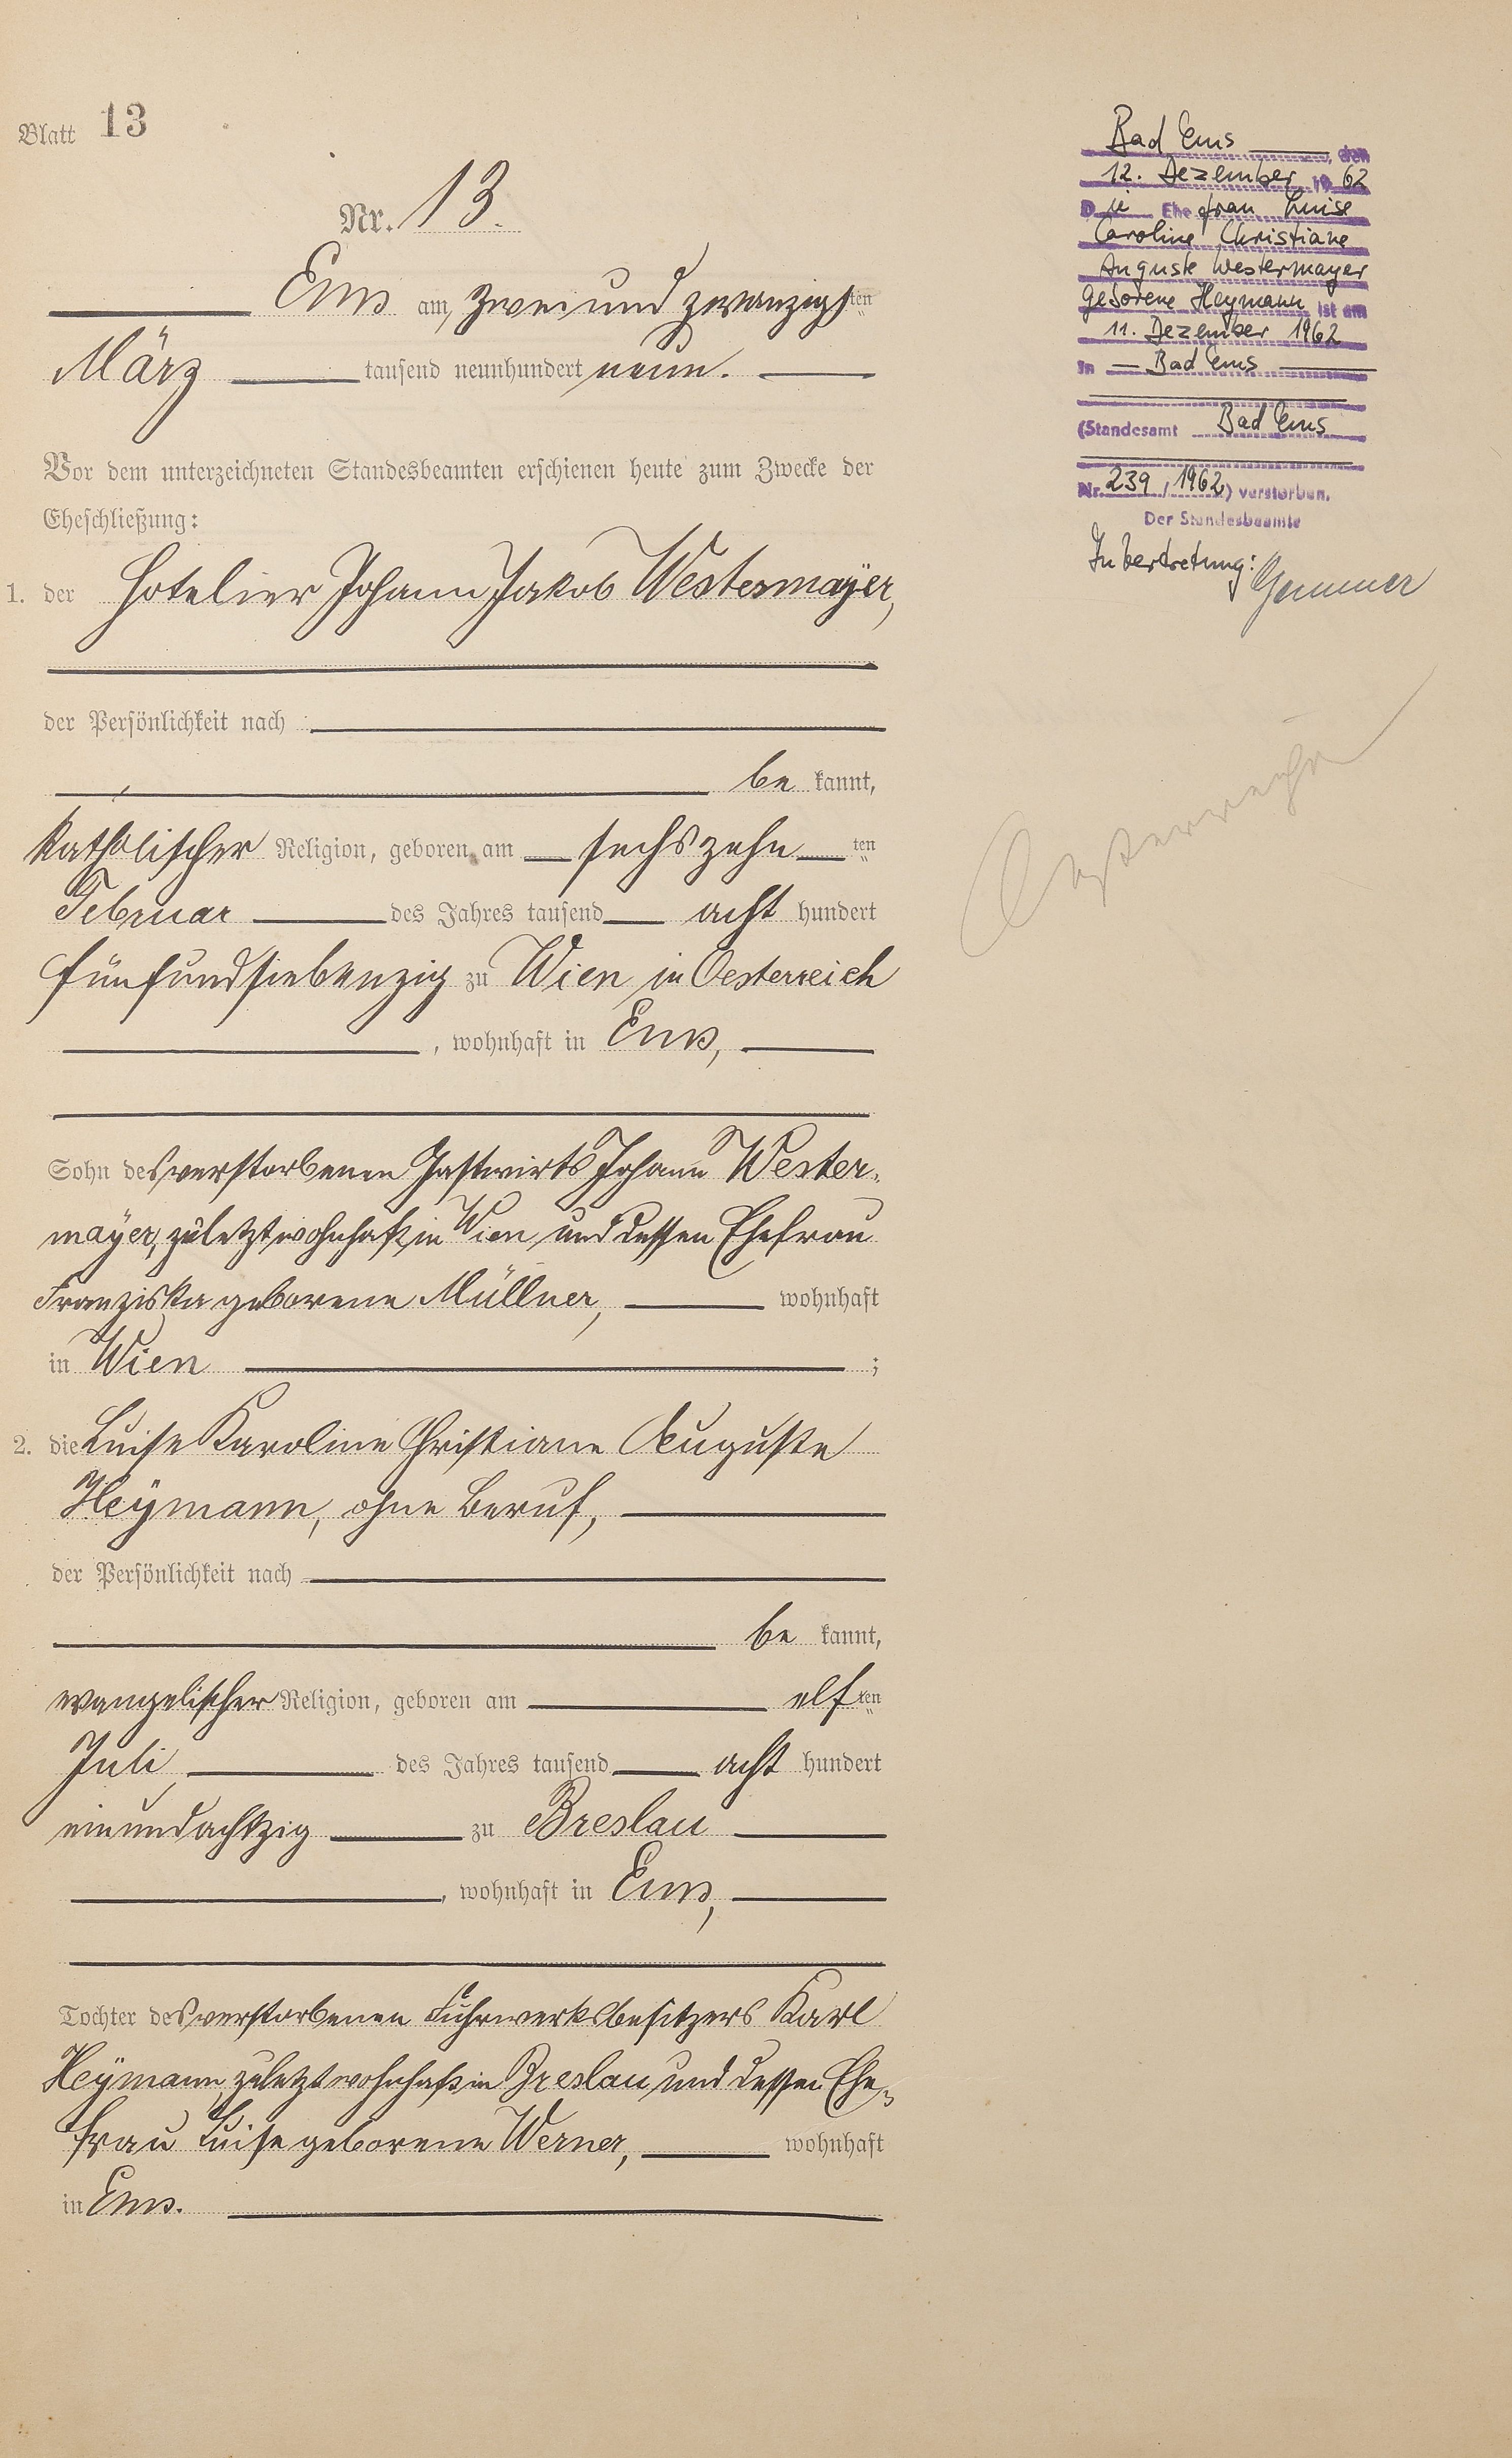 Blatt 13
Nr. 13.
Ems am zweiundzwanzigsten
März tausend neunhundert neun.
Vor dem unterzeichneten Standesbeamten erschienen heute zum Zwecke der
Eheschließung:
1. der Hotelier Johann Jakob Westermayer,
der Persönlichkeit nach
be kannt,
katholischer Religion, geboren am sechszehn ten
Februar des Jahres tausend acht hundert
fünfundsiebenzig zu Wien in Oesterreich
, wohnhaft in Ems,
Sohn des verstorbenen Gastwirts Johann Wester-
mayer, zuletzt wohnhaft in Wien und dessen Ehefrau
Franziska geborene Müllner, wohnhaft
in Wien ;
2. die Luise Karoline Christiane Auguste
Heymann, ohne Beruf,
der Persönlichkeit nach
be kannt,
evangelischer Religion, geboren am elften
Juli des Jahres tausend acht hundert
einundachtzig zu Breslau
, wohnhaft in Ems,
Tochter des verstorbenen Fuhrwerksbesitzers Karl
Heymann, zuletzt wohnhaft in Breslau und dessen Ehe-
frau Luise geborene Werner, wohnhaft
in Ems.
Bad Ems, den
12. Dezember 1962
Die Ehefrau Luise
Caroline Christiane
Auguste Westermayer
geborene Heymann ist am
11. Dezember 1962
in Bad Ems
(Standesamt Bad Ems
Nr. 239, 1962) verstorben.
Der Standesbeamte
In Vertretung: